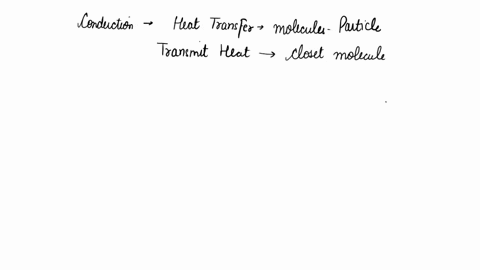 Conduction → Heat Transfer → molecules - Particle
Transmit Heat → Closet molecule